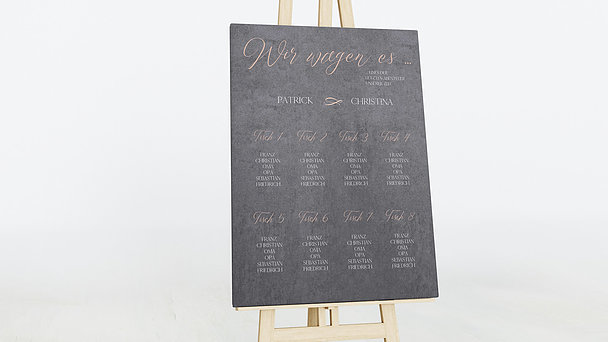 Wir wagen es ...
PATRICK CHRISTINA
Tisch 1 Tisch 2 Tisch 3 Tisch 4
FRANZ FRANZ FRANZ FRANZ
CHRISTIAN CHRISTIAN CHRISTIAN CHRISTIAN
OMA OMA OMA OMA
OPA OPA OPA OPA
SEBASTIAN SEBASTIAN SEBASTIAN SEBASTIAN
FRIEDRICH FRIEDRICH FRIEDRICH FRIEDRICH
Tisch 5 Tisch 6 Tisch 7 Tisch 8
FRANZ FRANZ FRANZ FRANZ
CHRISTIAN CHRISTIAN CHRISTIAN CHRISTIAN
OMA OMA OMA OMA
OPA OPA OPA OPA
SEBASTIAN SEBASTIAN SEBASTIAN SEBASTIAN
FRIEDRICH FRIEDRICH FRIEDRICH FRIEDRICH